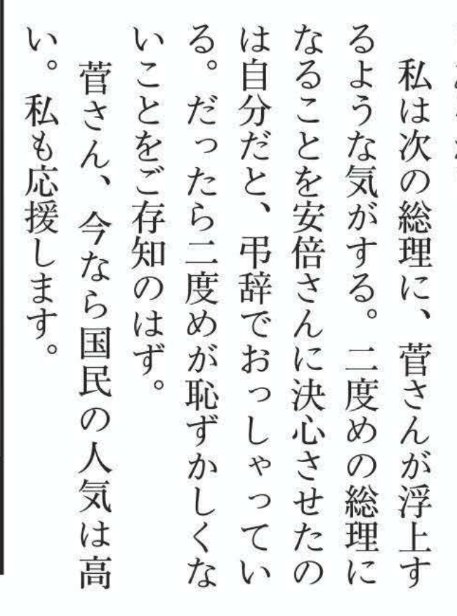 私は次の総理に、菅さんが浮上す
るような気がする。二度めの総理に
なることを安倍さんに決心させたの
は自分だと、弔辞でおっしゃってい
る。だったら二度めが恥ずかしくな
いことをご存知のはず。
菅さん、今なら国民の人気は高
い。私も応援します。